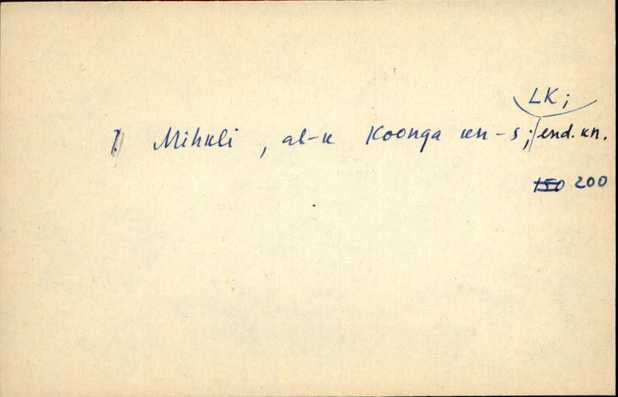 LK;
Mihkli, al-k Koonga kn-s; end. kn.
150 200